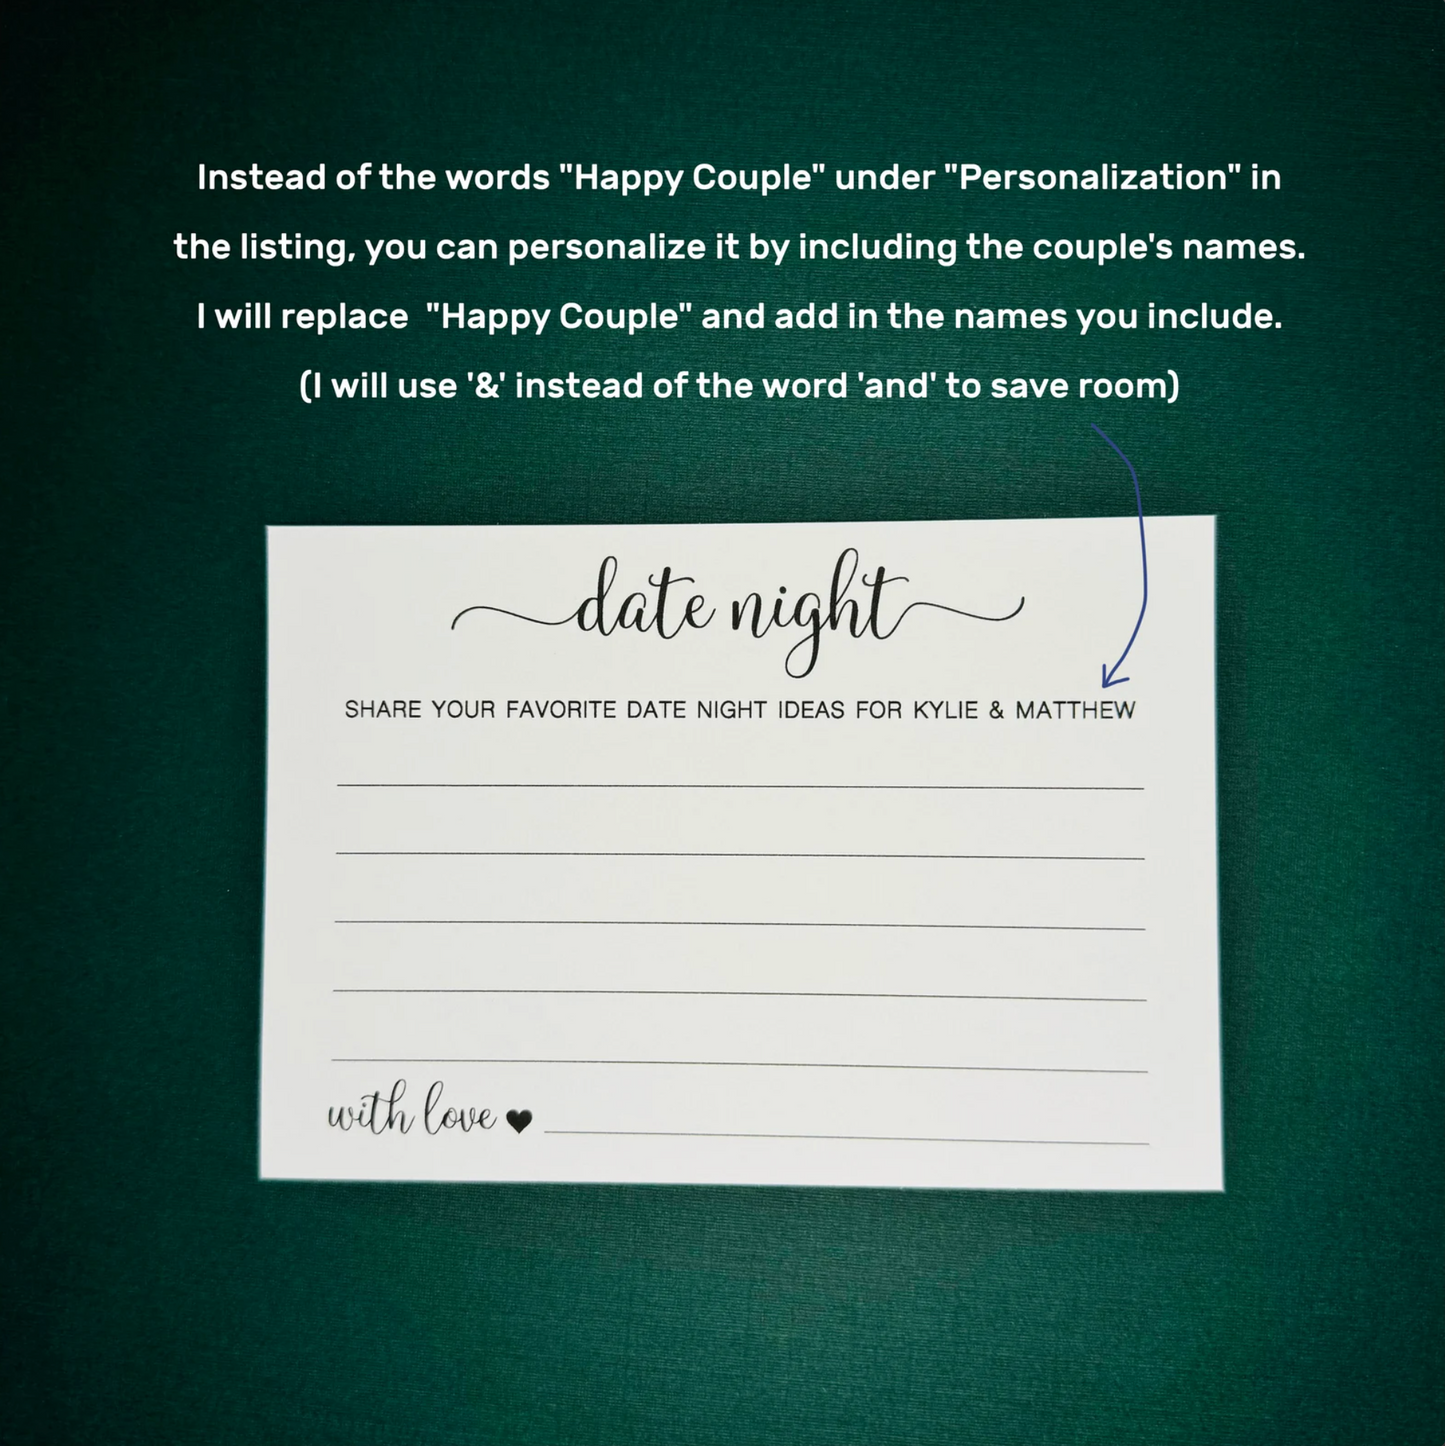 Instead of the words "Happy Couple" under "Personalization" in
the listing, you can personalize it by including the couple's names.
I will replace  "Happy Couple" and add in the names you include.
(I will use '&' instead of the word 'and' to save room)
date night
SHARE YOUR FAVORITE DATE NIGHT IDEAS FOR KYLIE & MATTHEW
with love ♥